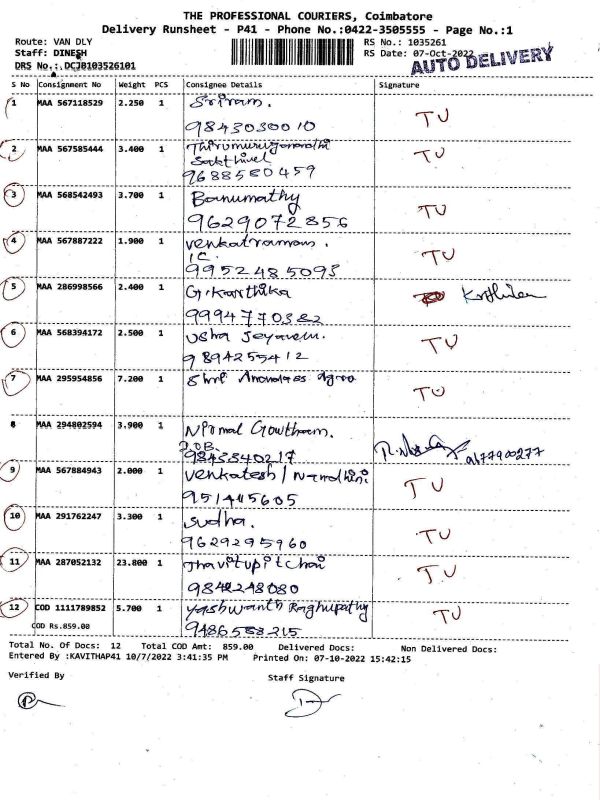 THE PROFESSIONAL COURIERS, Coimbatore
Delivery Runsheet - P41 - Phone No.:0422-3505555 - Page No.:1
Route: VAN DLY
RS No.: 1035261
Staff: DINESH
RS Date: 07-Oct-2022
AUTO DELIVERY
DRS No.:.DCJ0103526101
S No Consignment No Weight PCS Consignee Details Signature
1 MAA 567118529 2.250 1 Sriram. TU
9843030010
2 MAA 567585444 3.400 1 TU
Sakthivel
9688580459
3 MAA 568542493 3.700 1 Banumathy TU
9629072856
4 MAA 567887222 1.900 1 Venkatraman. TU
9952485093
5 MAA 286998566 2.400 1 G.Karthika
9994770382
6 MAA 568394172 2.500 1 Usha Jeyaram. TU
9894255412
7 MAA 295954856 7.200 1 Shri Anandaas Agro TU
8 MAA 294802594 3.900 1 Nirmal Gowtham.
9843340217
9 MAA 567884943 2.000 1 Venkatesh / Nandhini TU
10 MAA 291762247 3.300 1 Sudha. TU
9629295960
11 MAA 287052132 23.800 1 TU
9842248080
12 COD 1111789852 5.700 1 Yashwanth Raghupathy TU
COD Rs.859.00 9486588215
Total No. Of Docs: 12 Total COD Amt: 859.00 Delivered Docs: Non Delivered Docs:
Entered By :KAVITHAP41 10/7/2022 3:41:35 PM Printed On: 07-10-2022 15:42:15
Verified By Staff Signature